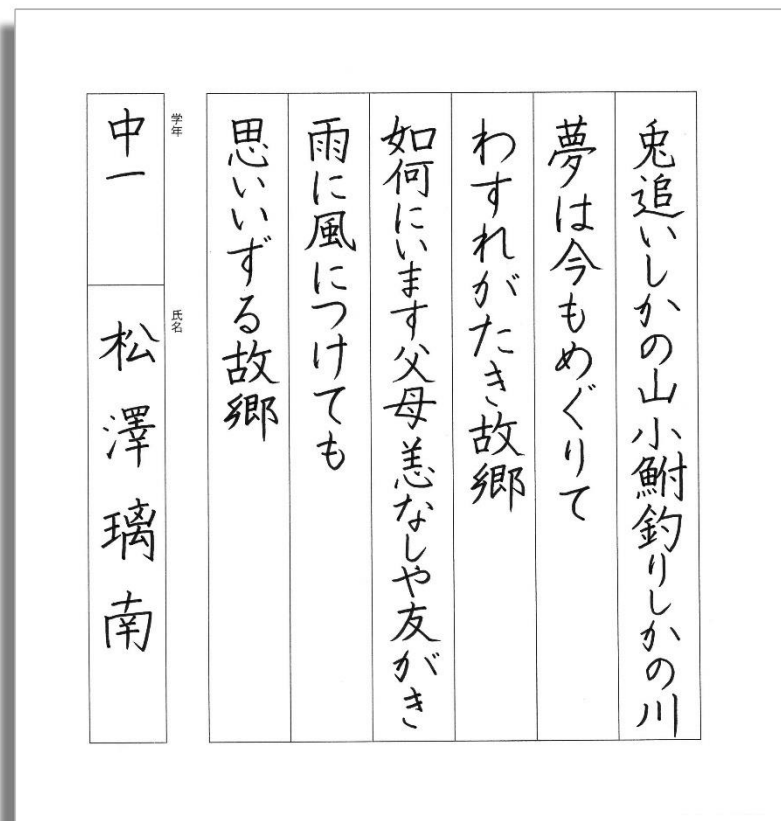 兎追いしかの山小鮒釣りしかの川
夢は今もめぐりて
わすれがたき故郷
如何にいます父母恙なしや友がき
雨に風につけても
思いいずる故郷
学年
中一
氏名
松澤璃南